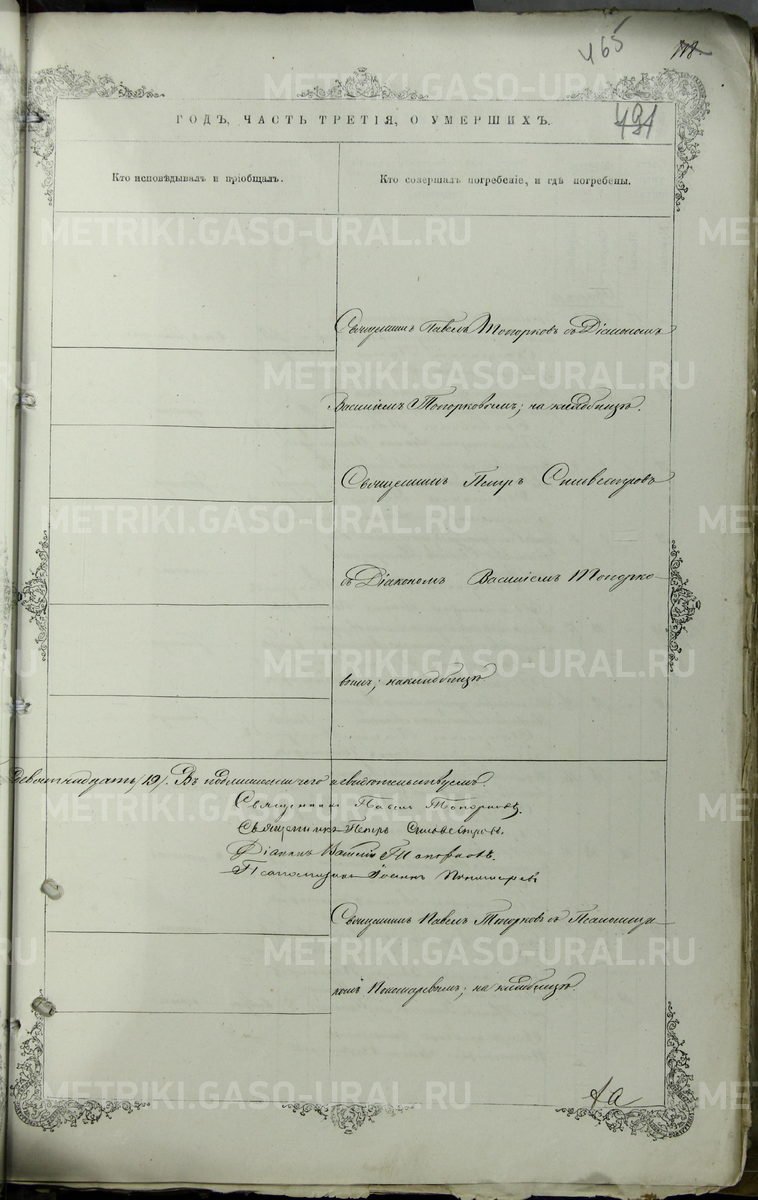 465
118
491
ГОДЪ, ЧАСТЬ ТРЕТІЯ, О УМЕРШИХЪ.
Кто исповѣдывалъ и пріобщалъ.
Кто совершалъ погребеніе, и гдѣ погребены.
Священникъ Павелъ Топорковъ съ Діакономъ
Василіемъ Топорковымъ; на кладбищѣ.
Священникъ Петръ Сильвестровъ
съ Діакономъ Василіемъ Топорко-
вымъ; на кладбищѣ
девятнадцать /19/. Въ подлинности чего и свидѣтельствуемъ.
Священникъ Павелъ Топорковъ.
Священникъ Петръ Сильвестровъ.
Діаконъ Василій Топорковъ.
Псаломщикъ Іоаннъ Пономаревъ
Священникъ Павелъ Топорковъ съ Псаломщи-
комъ Пономаревымъ; на кладбищѣ.
METRIKI.GASO-URAL.RU